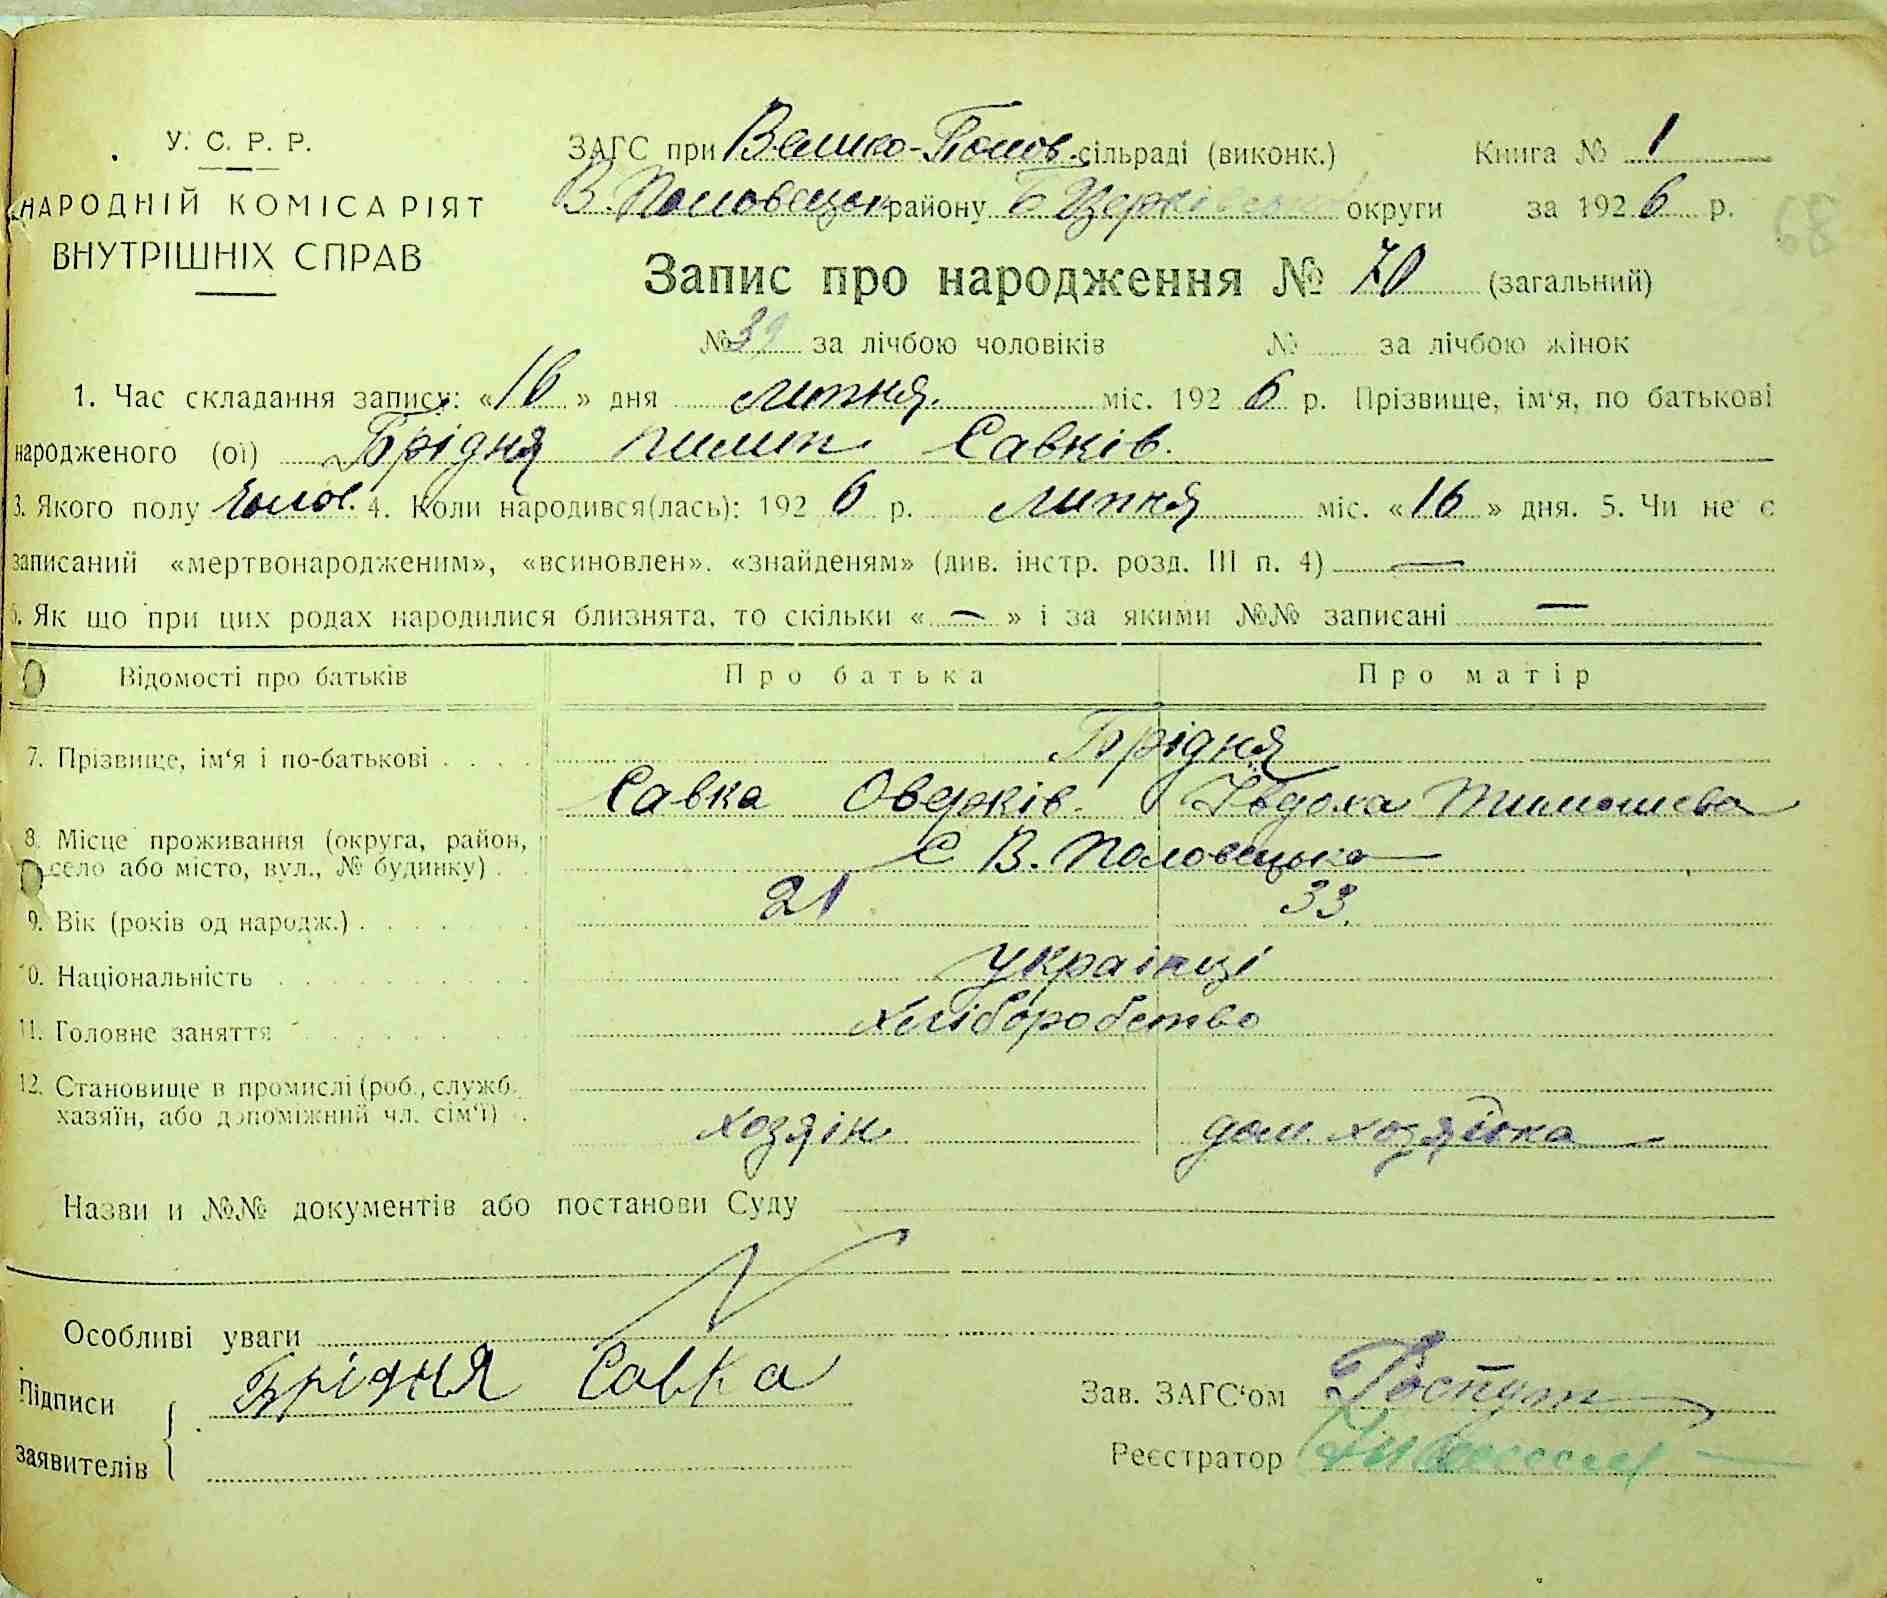 У. С. Р. Р.
НАРОДНІЙ КОМІСАРІЯТ
ВНУТРІШНІХ СПРАВ
ЗАГС при Велико-Полов. сільраді (виконк.) Книга № 1
В. Половецьк району Б Церківської округи за 1926 р.
68
Запис про народження № 70 (загальний)
№ 39 за лічбою чоловіків № за лічбою жінок
1. Час складання запису: «16» дня липня. міс. 1926 р. Прізвище, ім'я, по батькові
народженого (ої) Брідня пилип Савків.
3. Якого полу чолов. 4. Коли народився(лась): 1926 р. липня міс. «16» дня. 5. Чи не є
записаний «мертвонародженим», «всиновлен». «знайденям» (див. інстр. розд. III п. 4) —
6. Як що при цих родах народилися близнята, то скільки «—» і за якими №№ записані —
Відомості про батьків Про батька Про матір
7. Прізвище, ім'я і по-батькові . . . . Брідня
Савка Оверків. Івдоха Тимошева
8. Місце проживання (округа, район,
село або місто, вул., № будинку) . . С В. Половецька
9. Вік (років од народж.) . . . . . . . 21 33.
10. Національність . . . . . . . . . . українці
11. Головне заняття . . . . . . . . хліборобство
12. Становище в промислі (роб., служб.
хазяїн, або допоміжний чл. сім'ї) . хозяін дом. хозяйка
Назви и №№ документів або постанови Суду
Особливі уваги
Підписи
заявителів
Брідня Савка
Зав. ЗАГС'ом
Реєстратор